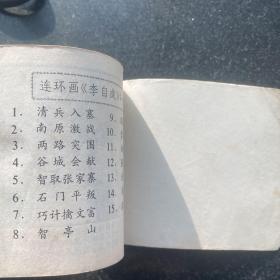 连环画《李自成》
1. 清兵入塞
2. 南原激战
3. 两路突围
4. 谷城会献
5. 智取张家寨
6. 石门平叛
7. 巧计擒文富
8. 智亭山
9.
10.
11.
12.
13.
14.
15.